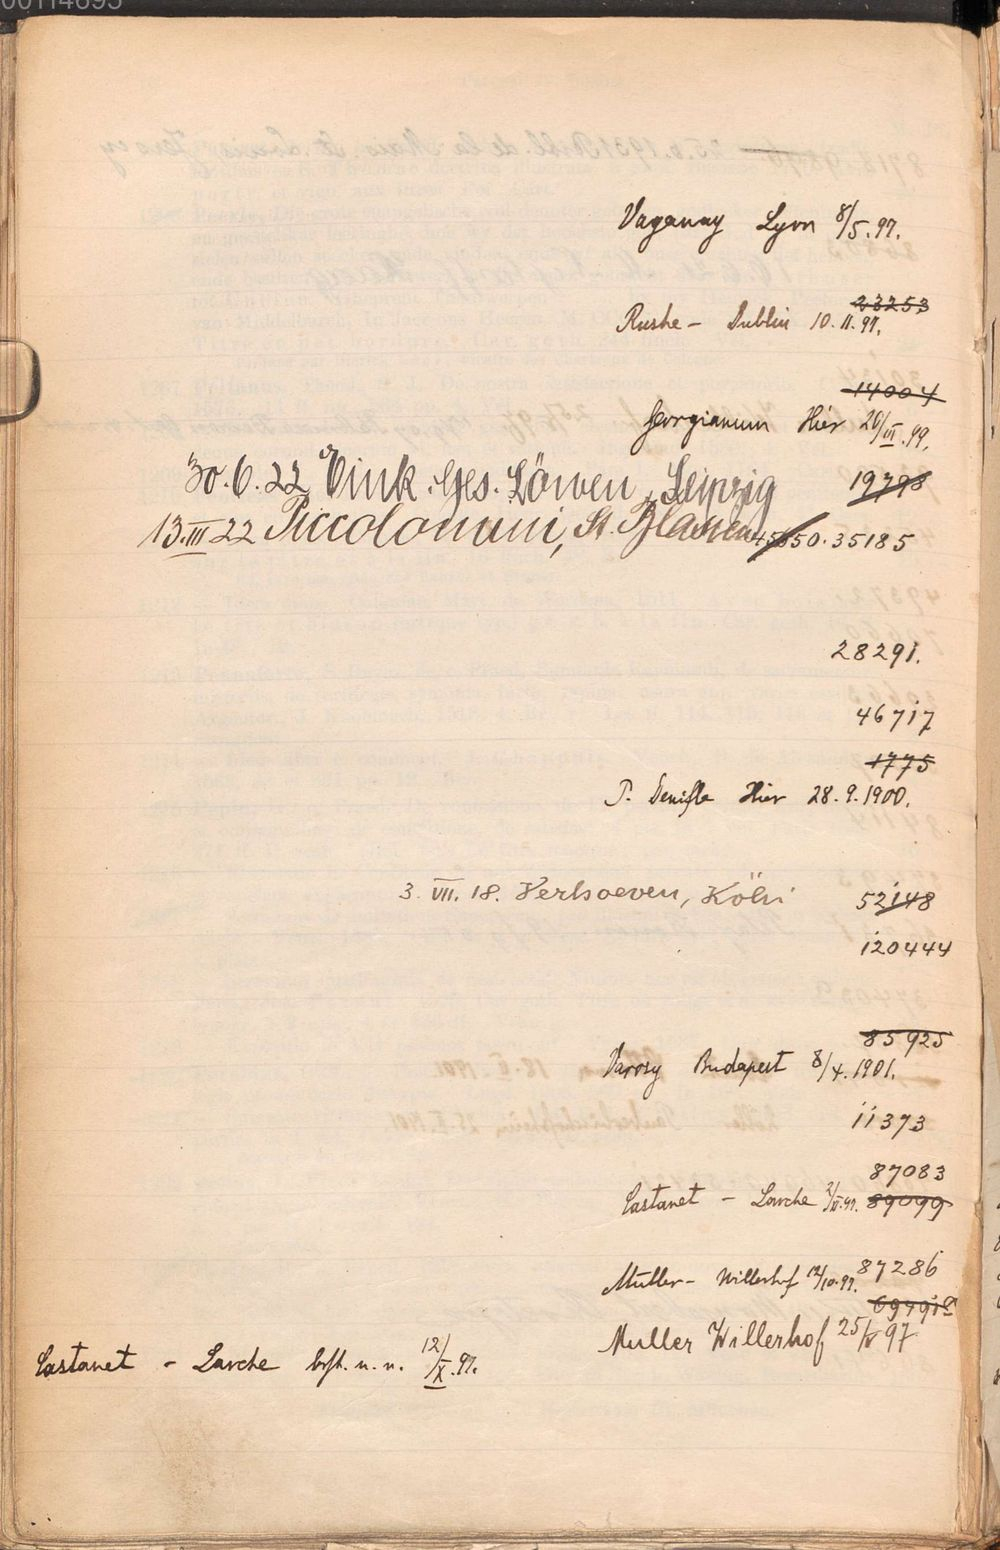 00114695
Vaganay Lyon 8/5.97.
23253
Rushe - Dublin 10.11.97.
14004
Georgianum Hier 26/VI.99.
30.6.22 Eink. Ges. Löwen, Leipzig 19798
13.III 22 Piccolomini, St. Blasien 45650. 35185
28291.
46717
1775
P. Denifle Hier 28.9.1900.
3. VII. 18. Verhoeven, Köln 52148
120444
85925
Varosy Budapest 8/4.1901.
11373
87083
Castanet - Larche 89099
Müller - Willerhof 12/10.97. 87286
Muller Willerhof 25/V 97
Castanet - Larche n. n. 12/X.97.